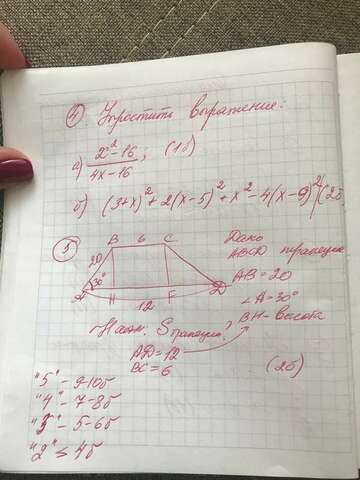 ④ Упростить выражение:
а) (x² - 16)/(4x - 16); (1б)
б) (3+x)² + 2(x-5)² + x² - 4(x-9)² (2б
⑤ Дано
B 6 C ABCD трапеция
20 AB = 20
A 30° D ∠A = 30°
H F BH - высота
12
Найти: Sтрапеции,
AD = 12
BC = 6 (2б)
"5" - 9-10б
"4" - 7-8б
"3" - 5-6б
"2" ≤ 4б